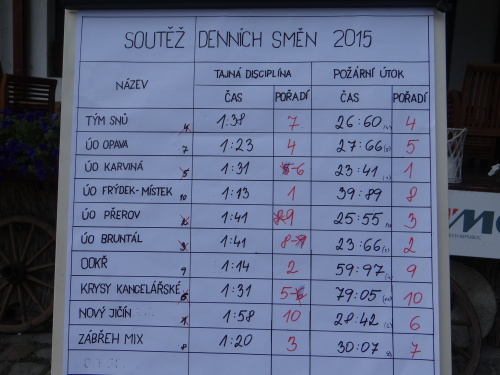 SOUTĚŽ DENNÍCH SMĚN 2015
NÁZEV TAJNÁ DISCIPLÍNA POŽÁRNÍ ÚTOK
ČAS POŘADÍ ČAS POŘADÍ
TÝM SNŮ 4 1:38 7 26:60 4
ÚO OPAVA 7 1:23 4 27:66 5
ÚO KARVINÁ 5 1:31 5-6 23:41 1
ÚO FRÝDEK-MÍSTEK 10 1:13 1 39:89 8
ÚO PŘEROV 1:41 9 25:55 3
ÚO BRUNTÁL 3 1:41 8-9 23:66 2
OOKŘ 9 1:14 2 59:97 9
KRYSY KANCELÁŘSKÉ 1:31 5-6 79:05 10
NOVÝ JIČÍN 1 1:58 10 28:42 6
ZÁBŘEH MIX 8 1:20 3 30:07 7